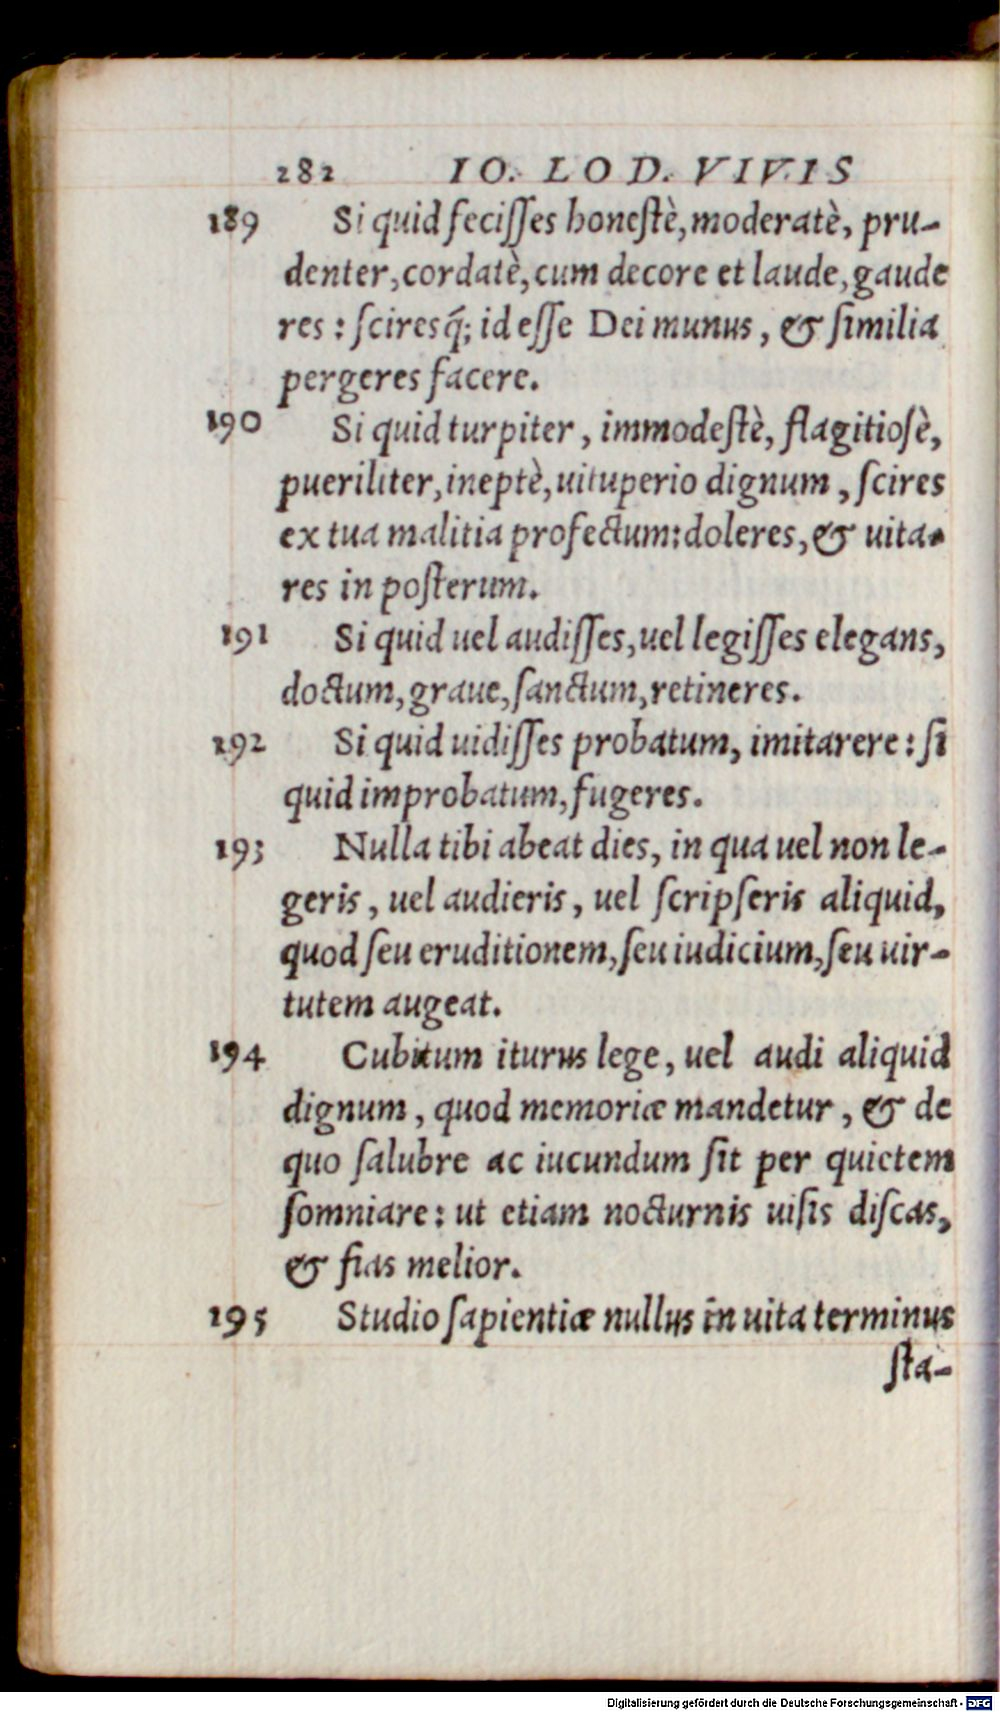 282 IO. LOD. VIVIS
189 Si quid feciſſes honeſtè, moderatè, pru-
denter, cordatè, cum decore et laude, gaude
res: ſciresq́; id eſſe Dei munus, & ſimilia
pergeres facere.
190 Si quid turpiter, immodeſtè, flagitioſè,
pueriliter, ineptè, uituperio dignum, ſcires
ex tua malitia profectum: doleres, & uita-
res in poſterum.
191 Si quid uel audiſſes, uel legiſſes elegans,
doctum, graue, ſanctum, retineres.
192 Si quid uidiſſes probatum, imitarere: ſi
quid improbatum, fugeres.
193 Nulla tibi abeat dies, in qua uel non le-
geris, uel audieris, uel ſcripſeris aliquid,
quod ſeu eruditionem, ſeu iudicium, ſeu uir-
tutem augeat.
194 Cubitum iturus lege, uel audi aliquid
dignum, quod memoriæ mandetur, & de
quo ſalubre ac iucundum ſit per quietem
ſomniare: ut etiam nocturnis uiſis diſcas,
& fias melior.
195 Studio ſapientiæ nullus in uita terminus
ſta-
Digitalisierung gefördert durch die Deutsche Forschungsgemeinschaft - DFG